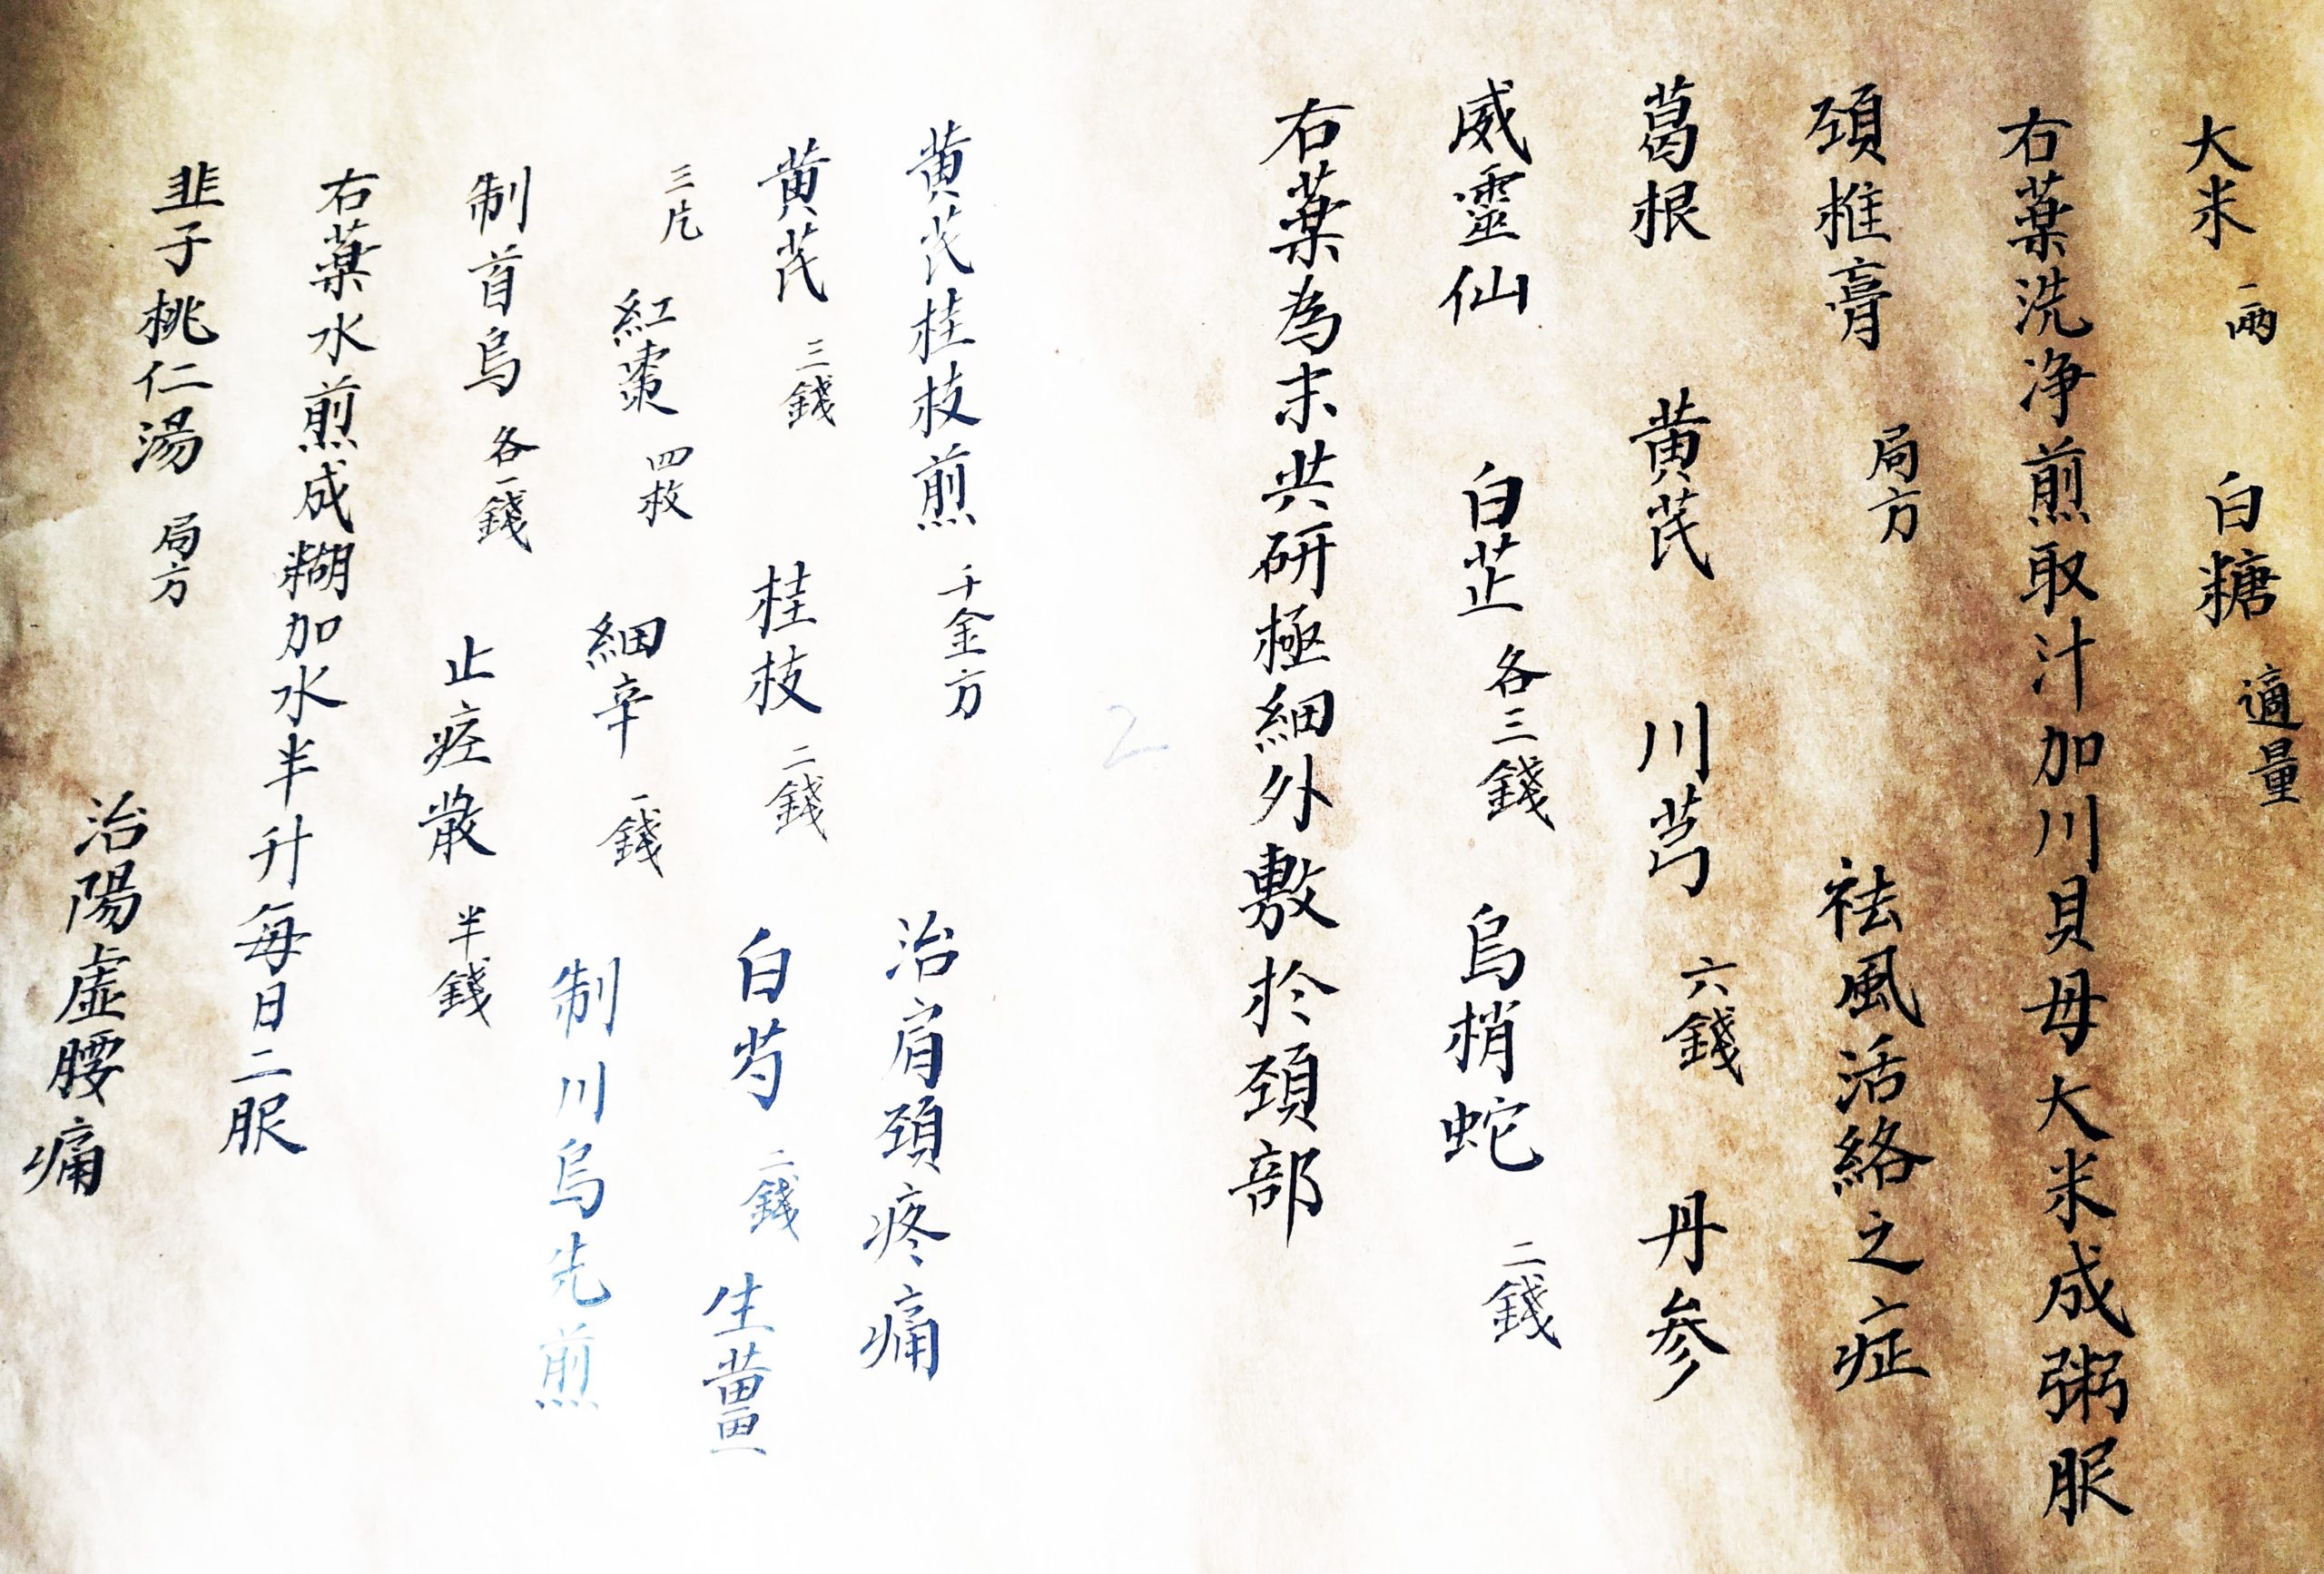 大米 一兩 白糖 適量
右藥洗净煎取汁加川貝母大米成粥服
頚椎膏 局方 祛風活絡之症
葛根 黄芪 川芎 六錢 丹参
威靈仙 白芷 各三錢 烏梢蛇 二錢
右藥為末共研極細外敷於頚部
2
黄芪桂枝煎 千金方 治肩頚疼痛
黄芪 三錢 桂枝 二錢 白芍 二錢 生薑
三片 紅棗 四枚 細辛 一錢 制川烏先煎
制首烏 各一錢 止痙散 半錢
右藥水煎成糊加水半升每日二服
韭子桃仁湯 局方 治陽虚腰痛